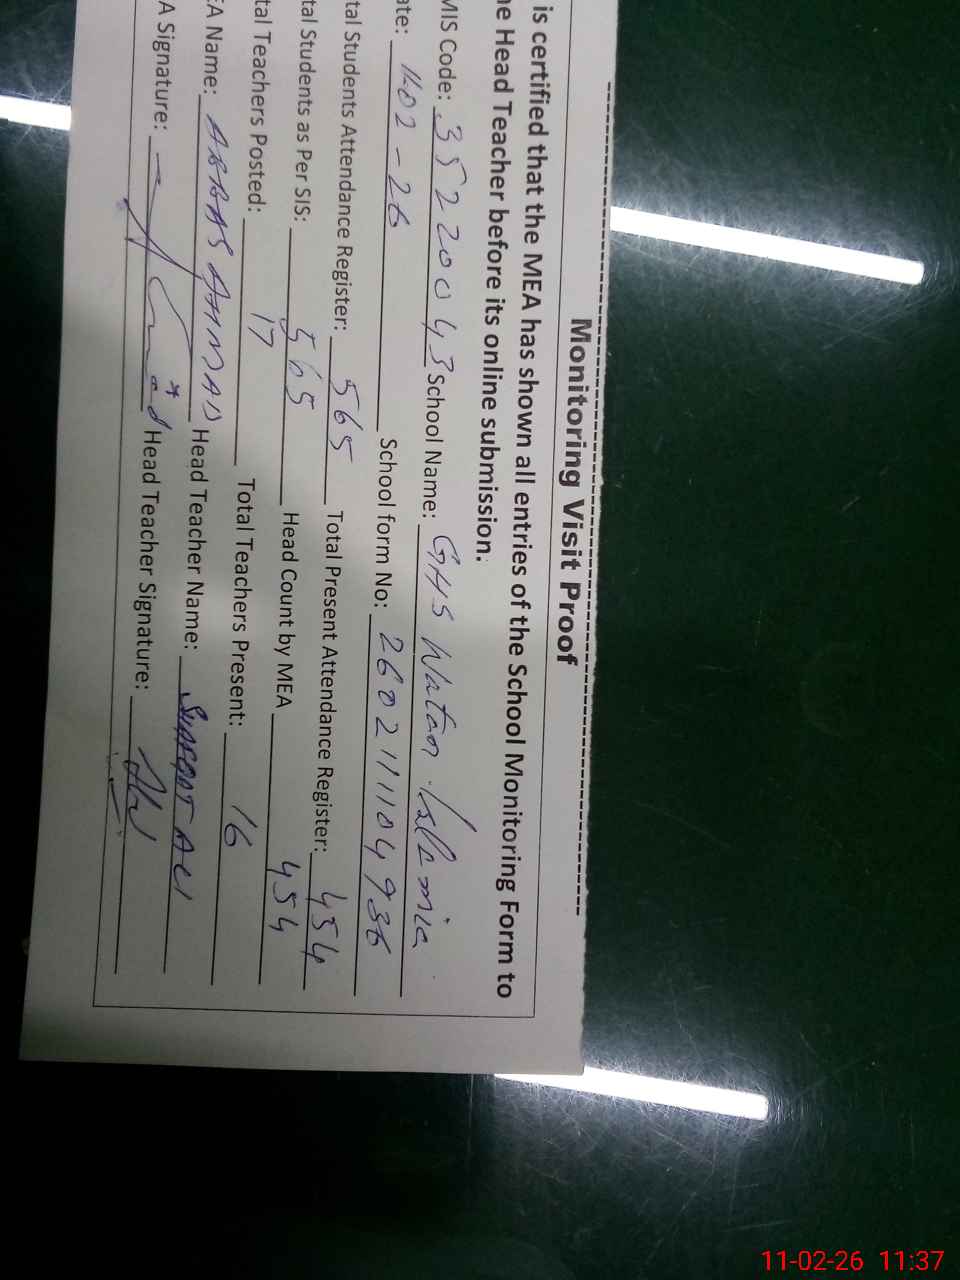 Monitoring Visit Proof
is certified that the MEA has shown all entries of the School Monitoring Form to
he Head Teacher before its online submission.
MIS Code: 35220043 School Name: GHS Watan Islamia
ate: 11-02-26 School form No: 260211104936
tal Students Attendance Register: 565 Total Present Attendance Register: 454
tal Students as Per SIS: 565 Head Count by MEA 454
tal Teachers Posted: 17 Total Teachers Present: 16
EA Name: ABBAS AHMAD Head Teacher Name: ALI
A Signature: Head Teacher Signature:
11-02-26 11:37